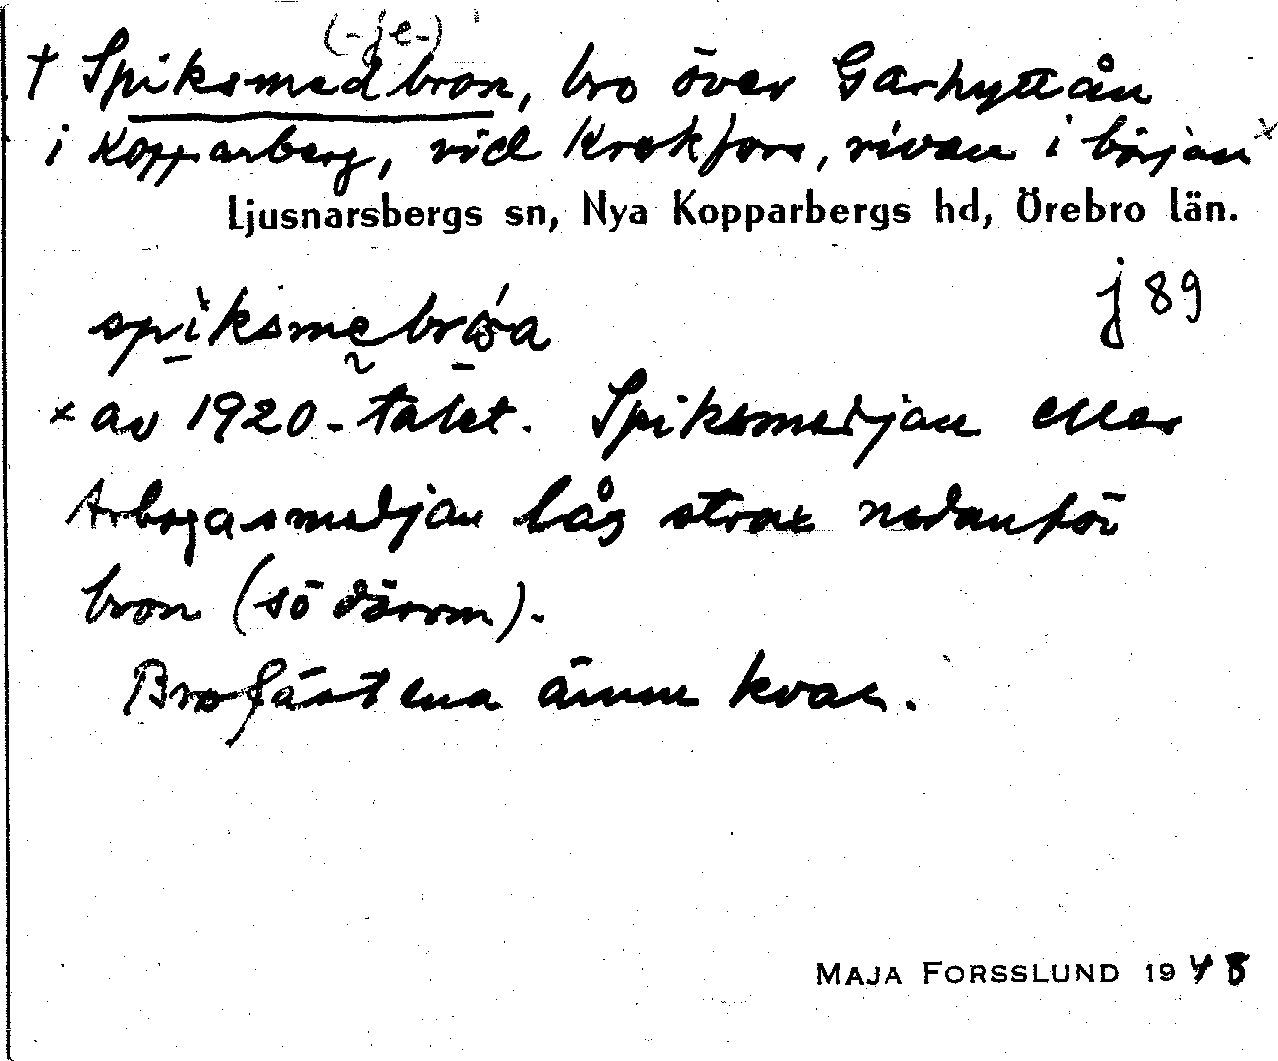 (-je-)
† Spiksmedbron, bro över Garhyttån
i Kopparberg, vid Krokfors, riven i början ×
Ljusnarsbergs sn, Nya Kopparbergs hd, Örebro län.
j 89
spiksmebróa
× av 1920-talet. Spiksmedjan eller
Arbogasmedjan låg strax nedanför
bron (sö därom).
Brofästena ännu kvar.
MAJA FORSSLUND 1948